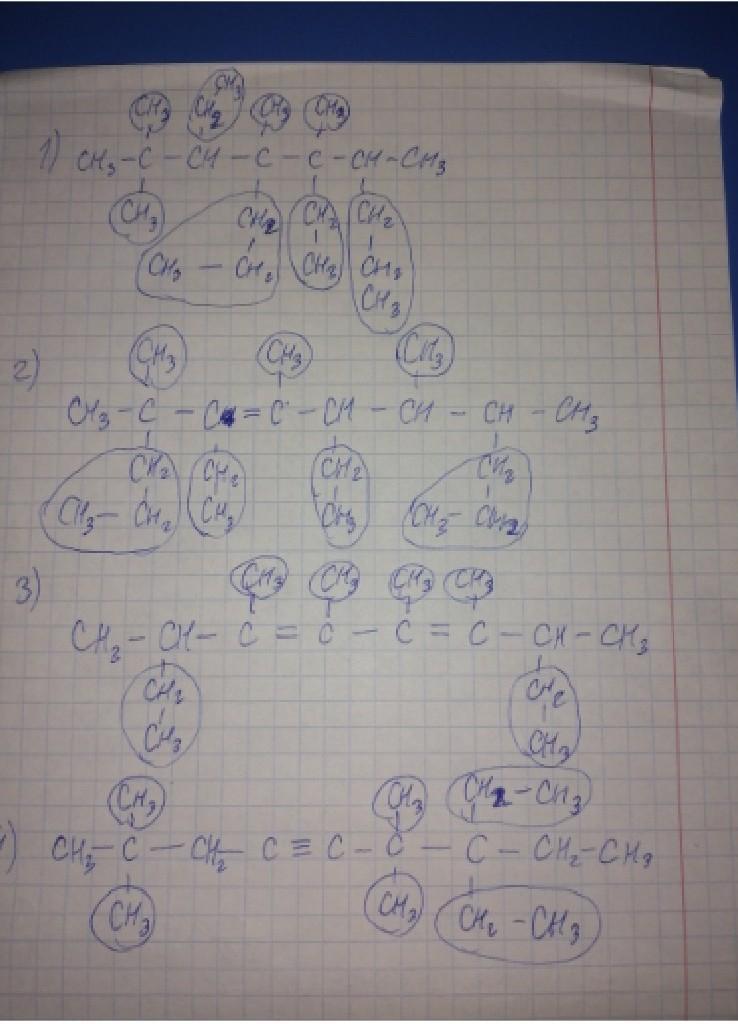 CH3
CH3 CH2 CH3 CH3
1) CH3 - C - CH - C - C - CH - CH3
CH3 CH2 CH2 CH2
CH3 - CH2 CH3 CH2
CH3
CH3 CH3 CH3
2) CH3 - C - C = C - CH - CH - CH - CH3
CH2 CH2 CH2 CH2
CH3 - CH2 CH3 CH3 CH3 - CH2
CH3 CH3 CH3 CH3
3) CH3 - CH - C = C - C = C - CH - CH3
CH2 CH2
CH3 CH3
CH3 CH3 CH2 - CH3
) CH3 - C - CH2 - C ≡ C - C - C - CH2 - CH3
CH3 CH3 CH2 - CH3